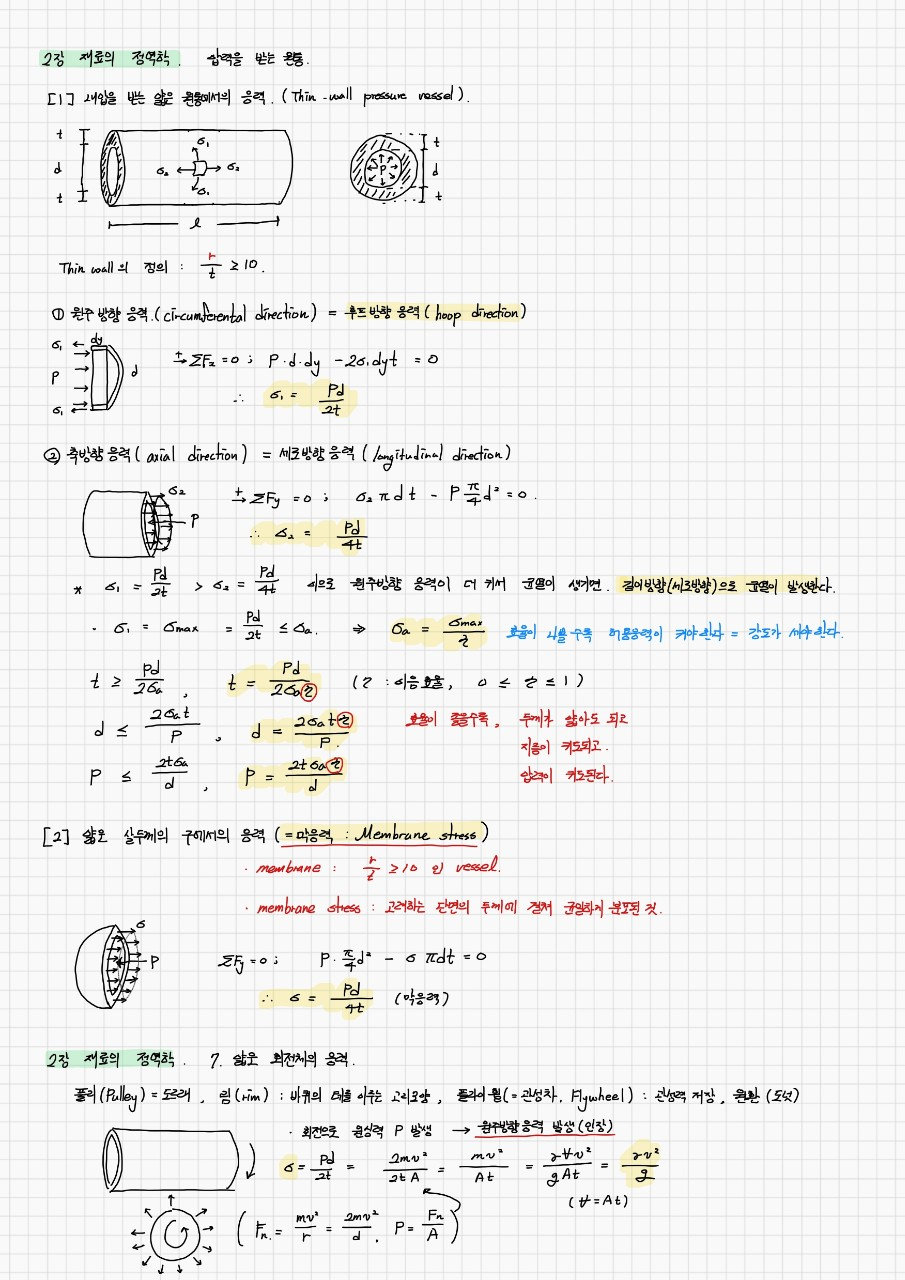 2장 재료의 정역학. 압력을 받는 원통.
[1] 내압을 받는 얇은 원통에서의 응력. (Thin-wall pressure vessel).
t
d
t
σ₂ σ₂
σ₁
l
P
t
d
t
Thin wall의 정의 : r/t ≥ 10.
① 원주 방향 응력. (circumferental direction) = 후프방향 응력 (hoop direction)
σ₁ dy
P d
σ₁
→⁺ ΣFx = 0 ; P·d·dy - 2σ₁dyt = 0
∴ σ₁ = Pd/2t
② 축방향 응력 (axial direction) = 세로방향 응력 (longitudinal direction)
σ₂
P
→⁺ ΣFy = 0 ; σ₂πdt - P π/4 d² = 0.
∴ σ₂ = Pd/4t
* σ₁ = Pd/2t > σ₂ = Pd/4t 이므로 원주방향 응력이 더 커서 균열이 생기면. 길이방향(세로방향)으로 균열이 발생한다.
· σ₁ = σmax = Pd/2t ≤ σa. ⇒ σa = σmax/η 효율이 나쁠수록 허용응력이 커야한다 = 강도가 세야한다.
t ≥ Pd/2σa , t = Pd/2σaη (η : 이음효율, 0 ≤ η ≤ 1)
d ≤ 2σat/P , d = 2σatη/P. 효율이 좋을수록, 두께가 얇아도 되고
지름이 커도되고.
P ≤ 2tσa/d , P = 2tσaη/d 압력이 커도된다.
[2] 얇은 살두께의 구에서의 응력 (=막응력 : Membrane stress)
· membrane : r/t ≥ 10 인 vessel.
· membrane stress : 고려하는 단면의 두께에 걸쳐 균일하게 분포된 것.
σ
P
ΣFy = 0 ; P·π/4 d² - σπdt = 0
∴ σ = Pd/4t (막응력)
2장 재료의 정역학. 7. 얇은 회전체의 응력.
풀리(Pulley) = 도르래, 림(rim) : 바퀴의 테를 이루는 고리모양, 플라이 휠(=관성차, Flywheel) : 관성력 저장, 원환 (도넛)
· 회전으로 원심력 P 발생 → 원주방향응력 발생(인장)
σ = Pd/2t = 2mv²/2tA = mv²/At = γVv²/gAt = γv²/g
(V = At)
(Fn = mv²/r = 2mv²/d, P = Fn/A)